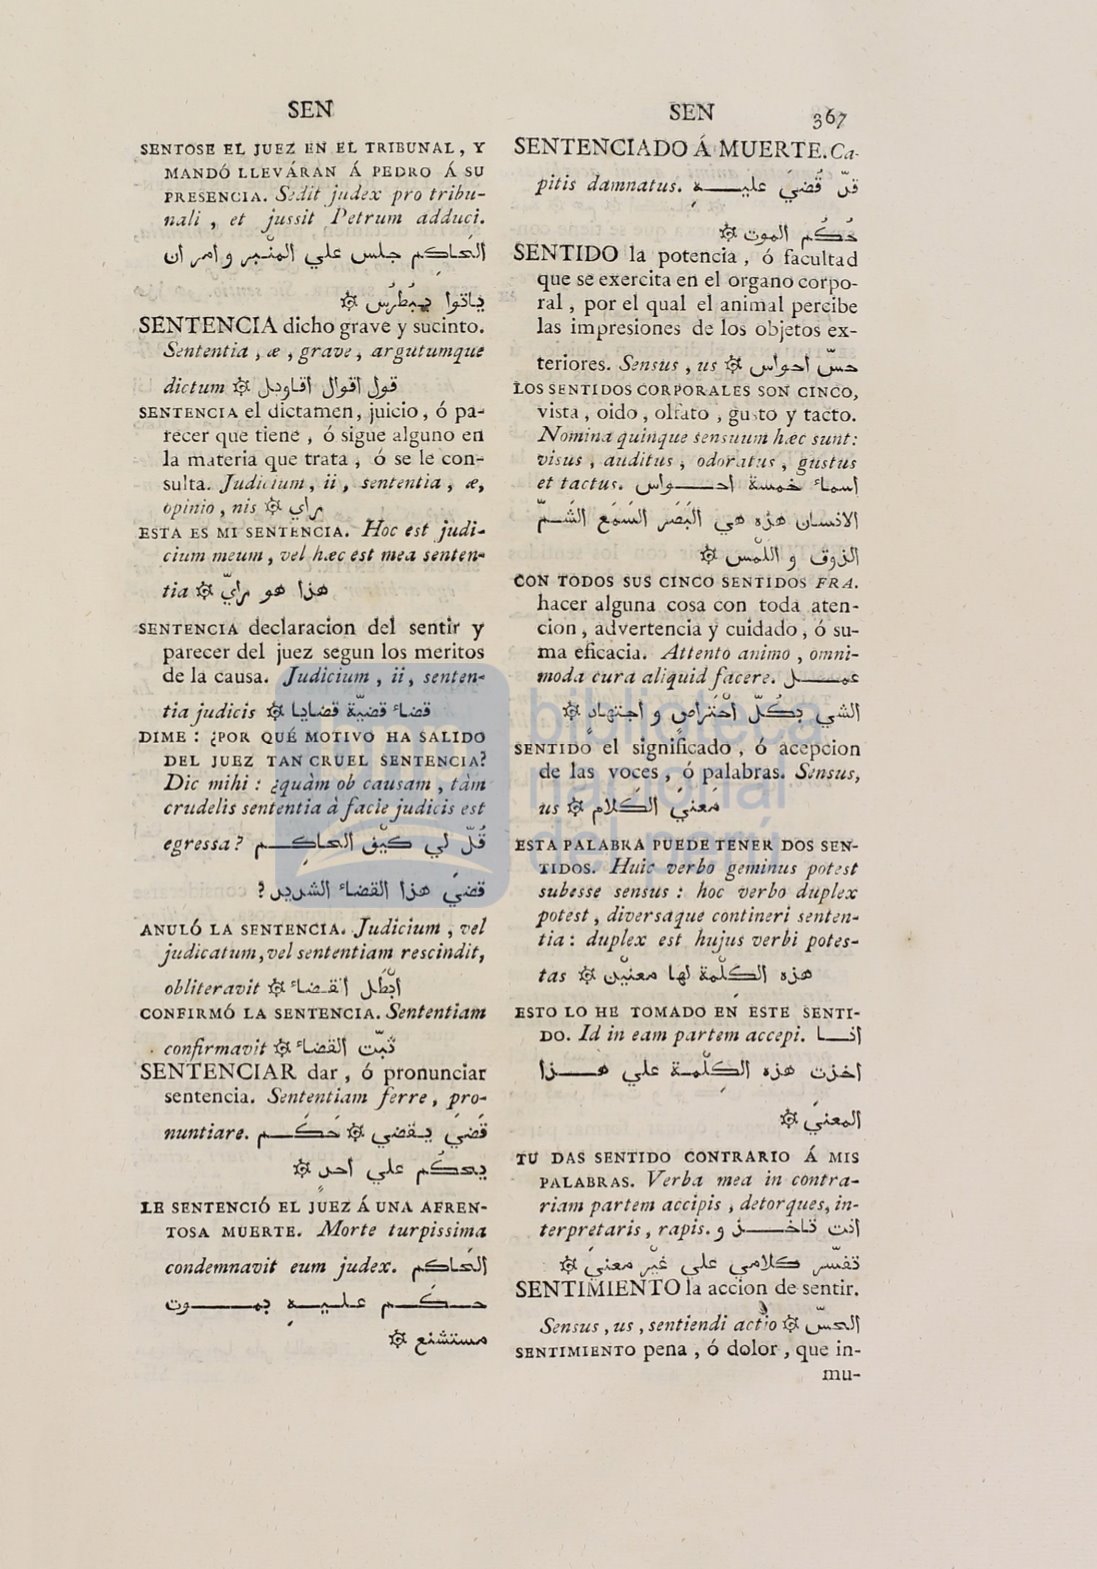 SEN
SENTOSE EL JUEZ EN EL TRIBUNAL, Y
MANDÓ LLEVÁRAN Á PEDRO Á SU
PRESENCIA. Sedit judex pro tribu-
nali, et jussit Petrum adduci.
الحاكم جلس علي المنبر وامر ان
ياتوا ببُطرُس ۞
SENTENCIA dicho grave y sucinto.
Sententia, æ, grave, argutumque
dictum ۞ قول اقوال أقاويل
SENTENCIA el dictamen, juicio, ó pa-
recer que tiene, ó sigue alguno en
la materia que trata, ó se le con-
sulta. Judicium, ii, sententia, æ,
opinio, nis ۞ راي
ESTA ES MI SENTENCIA. Hoc est judi-
cium meum, vel hæc est mea senten-
tia ۞ هذا هو رايّ
SENTENCIA declaracion del sentir y
parecer del juez segun los meritos
de la causa. Judicium, ii, senten-
tia judicis ۞ قضاء قضيّة قضايا
DIME: ¿POR QUÉ MOTIVO HA SALIDO
DEL JUEZ TAN CRUEL SENTENCIA?
Dic mihi: ¿quàm ob causam, tàm
crudelis sententia à facie judicis est
egressa? قُلّ لي كيْف الحاكِم
قضَي هذا القضاء الشديد ?
ANULÓ LA SENTENCIA. Judicium, vel
judicatum, vel sententiam rescindit,
obliteravit ۞ ابْطَل القضاء
CONFIRMÓ LA SENTENCIA. Sententiam
confirmavit ۞ ثَبّت القضاء
SENTENCIAR dar, ó pronunciar
sentencia. Sententiam ferre, pro-
nuntiare. قضَي يقضي ۞ حَكَم
يحكُم علي احد ۞
LE SENTENCIÓ EL JUEZ Á UNA AFREN-
TOSA MUERTE. Morte turpissima
condemnavit eum judex. الحاكم
حكَم عليهِ بموت
مستشنع ۞
SEN
367
SENTENCIADO Á MUERTE. Ca-
pitis damnatus. قدّ قُضيَ عليهِ
حُكُم الموت ۞
SENTIDO la potencia, ó facultad
que se exercita en el organo corpo-
ral, por el qual el animal percibe
las impresiones de los objetos ex-
teriores. Sensus, us ۞ حسّ احواس
LOS SENTIDOS CORPORALES SON CINCO,
vista, oido, olfato, gusto y tacto.
Nomina quinque sensuum hæc sunt:
visus, auditus, odoratus, gustus
et tactus. اسماء خمسة احواس
الانسان هذه هي البَصَر السَمَع الشَمّ
الذوق و اللْمس ۞
CON TODOS SUS CINCO SENTIDOS FRA.
hacer alguna cosa con toda aten-
cion, advertencia y cuidado, ó su-
ma eficacia. Attento animo, omni-
moda cura aliquid facere. عمل
الشي بكُلّ احْتراصٍ و اجتهادٍ ۞
SENTIDO el significado, ó acepcion
de las voces, ó palabras. Sensus,
us ۞ مَعنيَ الكَلام
ESTA PALABRA PUEDE TENER DOS SEN-
TIDOS. Huic verbo geminus potest
subesse sensus: hoc verbo duplex
potest, diversaque contineri senten-
tia: duplex est hujus verbi potes-
tas ۞ هذه الكِلْمة لها معنيْن
ESTO LO HE TOMADO EN ESTE SENTI-
DO. Id in eam partem accepi. انا
اخذت هذه الكِلْمة علي هذا
المعنيَ ۞
TU DAS SENTIDO CONTRARIO Á MIS
PALABRAS. Verba mea in contra-
riam partem accipis, detorques, in-
terpretaris, rapis. انت تاخذ و
تفسّر كلامي علي غيْر معنيَ ۞
SENTIMIENTO la accion de sentir.
Sensus, us, sentiendi actio ۞ الحسّ
SENTIMIENTO pena, ó dolor, que in-
mu-
biblioteca
nacional
del perú